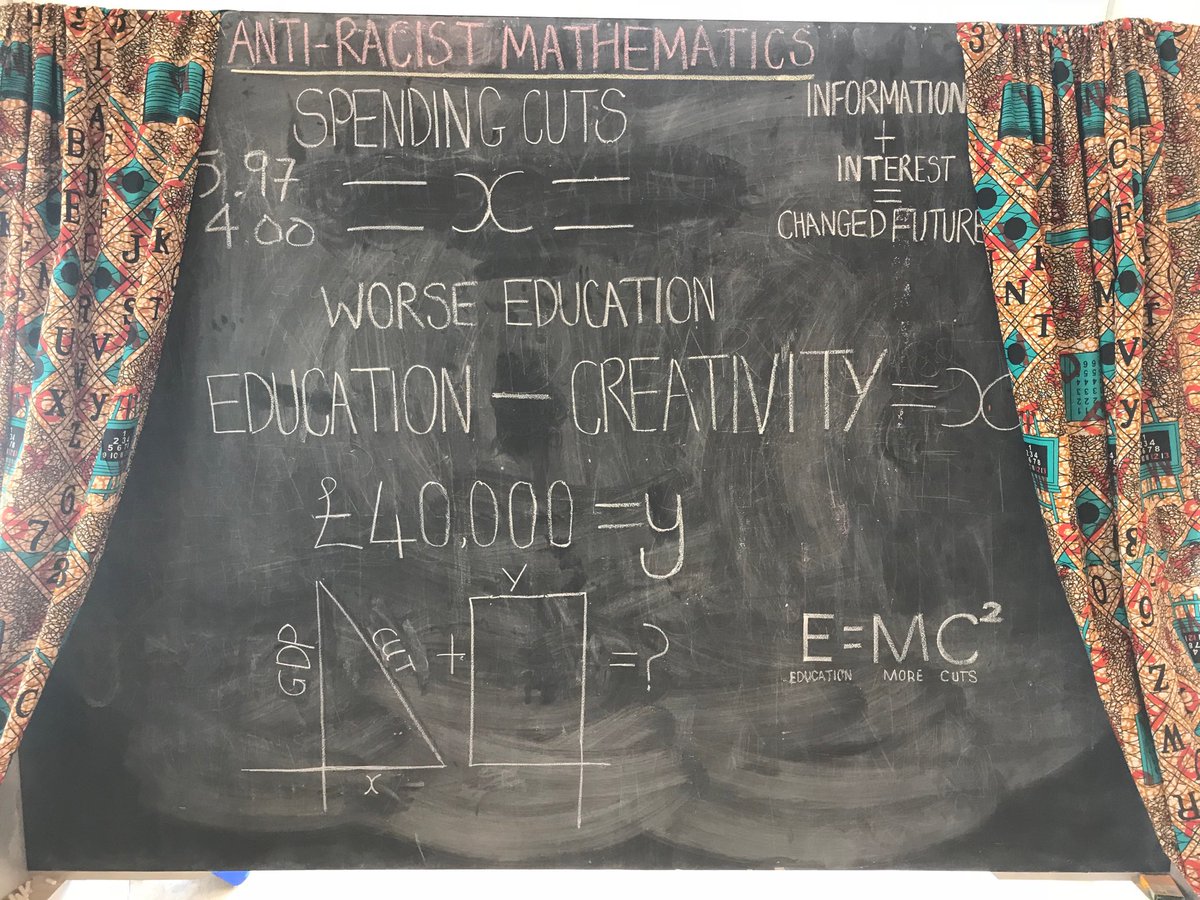 ANTI-RACIST MATHEMATICS
SPENDING CUTS
5.97
4.00
= x =
WORSE EDUCATION
EDUCATION - CREATIVITY = x
£40,000 = y
GDP
x
+
Y
= ?
INFORMATION
+
INTEREST
=
CHANGED FUTURE
E=MC²
EDUCATION MORE CUTS